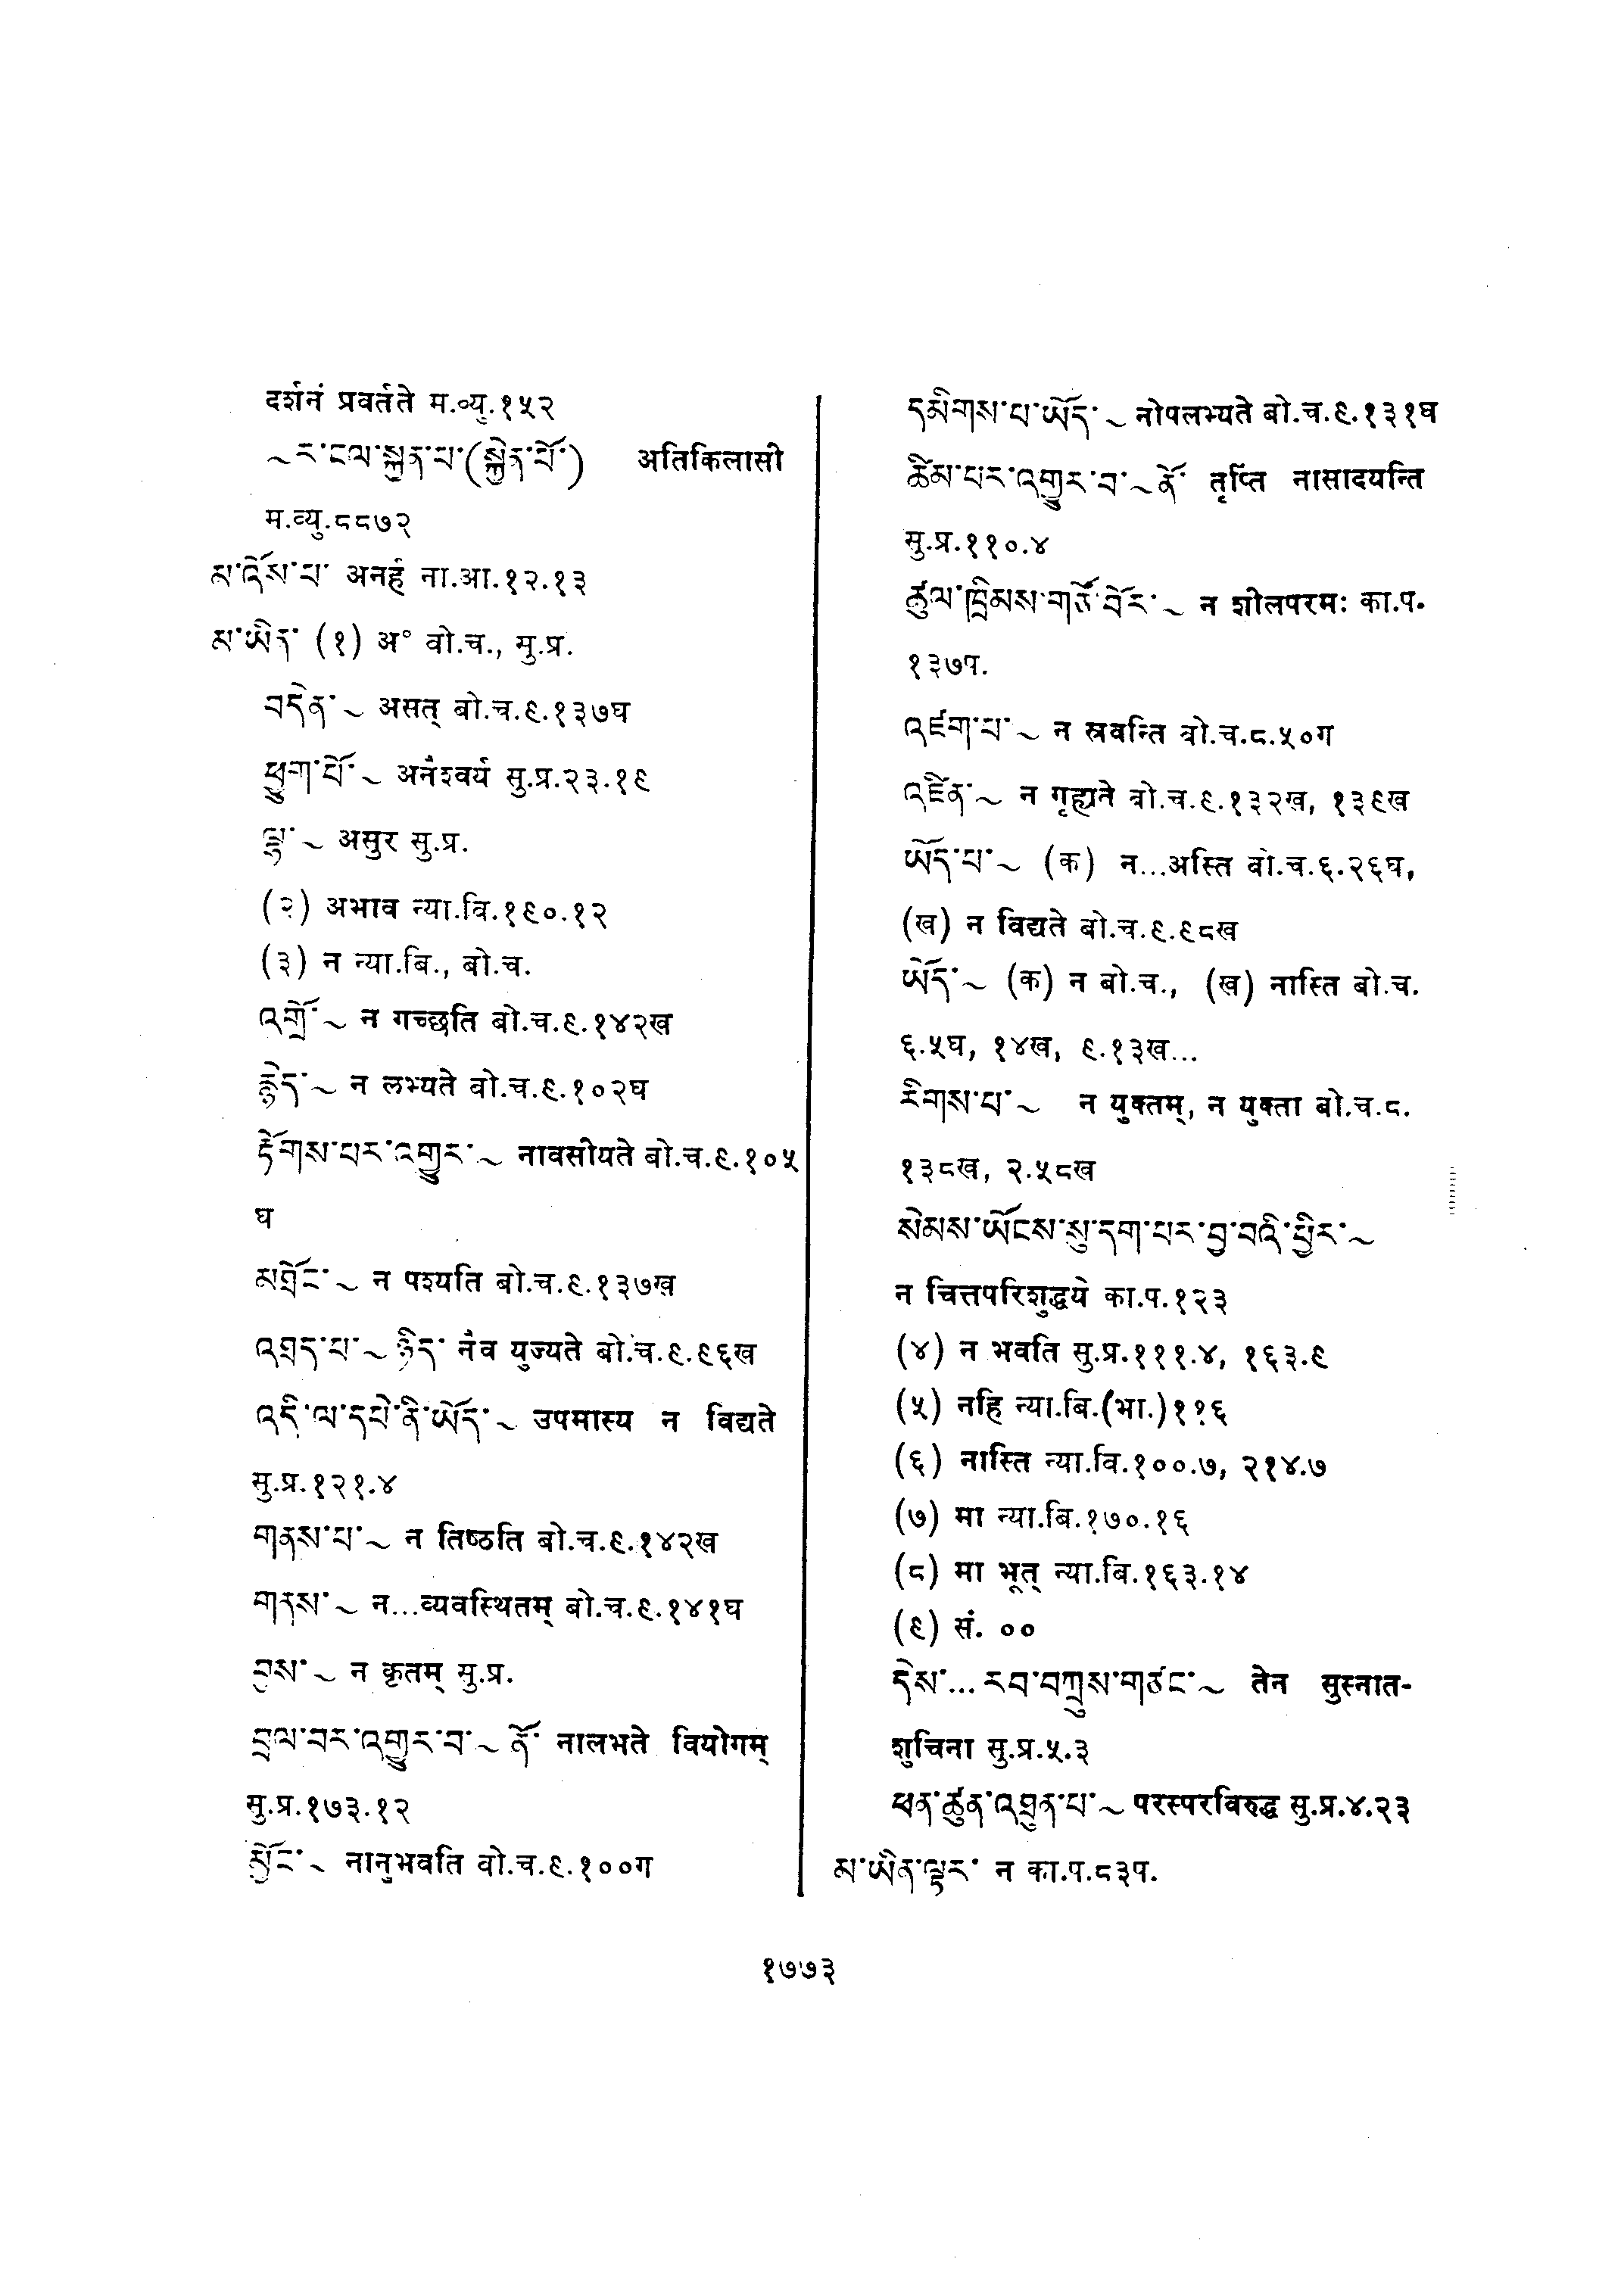 दर्शनं प्रवर्तते म.व्यु.१५२
~ར་ངལ་སྐྱན་པ་(སྐྱེན་པོ་) अतिकिलासी
म.व्यु.८८७२
མ་འོས་པ་ अनर्ह ना.आ.१२.१३
མ་ཡིན་ (१) अ° बो.च., सु.प्र.
བདེན་~ असत् बो.च.९.१३७घ
ཕྱུག་པོ་~ अनैश्वर्य सु.प्र.२३.१९
ལྷ་~ असुर सु.प्र.
(२) अभाव न्या.बि.१९०.१२
(३) न न्या.बि., बो.च.
འགྲོ་~ न गच्छति बो.च.९.१४२ख
རྙེད་~ न लभ्यते बो.च.९.१०२घ
རྟོགས་པར་འགྱུར་~ नावसीयते बो.च.९.१०५
घ
མཐོང་~ न पश्यति बो.च.९.१३७ख
འཐད་པ་~ཉིད་ नैव युज्यते बो.च.९.९६ख
འདི་ལ་དཔེ་ནི་ཡོད་~ उपमास्य न विद्यते
सु.प्र.१२१.४
གནས་པ་~ न तिष्ठति बो.च.९.१४२ख
གནས་~ न...व्यवस्थितम् बो.च.९.१४१घ
བྱས་~ न कृतम् सु.प्र.
བྲལ་བར་འགྱུར་བ་~ནོ་ नालभते वियोगम्
सु.प्र.१७३.१२
མྱོང་~ नानुभवति बो.च.९.१००ग
དམིགས་པ་ཡོད་~ नोपलभ्यते बो.च.९.१३१घ
ཚིམ་པར་འགྱུར་བ་~ནོ་ तृप्तिं नासादयन्ति
सु.प्र.११०.४
ཚུལ་ཁྲིམས་གཙོ་བོར་~ न शीलपरमः का.प.
१३७प.
འཛག་པ་~ न स्रवन्ति बो.च.८.५०ग
འཛིན་~ न गृह्यते बो.च.९.१३२ख, १३९ख
ཡོད་པ་~ (क) न...अस्ति बो.च.६.२६घ,
(ख) न विद्यते बो.च.९.९८ख
ཡོད་~ (क) न बो.च., (ख) नास्ति बो.च.
६.५घ, १४ख, ९.१३ख...
རིགས་པ་~ न युक्तम्, न युक्ता बो.च.८.
१३८ख, २.५८ख
སེམས་ཡོངས་སུ་དག་པར་བྱ་བའི་ཕྱིར་~
न चित्तपरिशुद्धये का.प.१२३
(४) न भवति सु.प्र.१११.४, १६३.९
(५) नहि न्या.बि.(भा.)११६
(६) नास्ति न्या.बि.१००.७, २१४.७
(७) मा न्या.बि.१७०.१६
(८) मा भूत् न्या.बि.१६३.१४
(९) सं. ००
དེས་... རབ་བཀྲུས་གཙང་~ तेन सुस्नात-
शुचिना सु.प्र.५.३
ཕན་ཚུན་འཐུན་པ་~ परस्परविरुद्ध सु.प्र.४.२३
མ་ཡིན་ལྟར་ न का.प.८३प.
१७७३